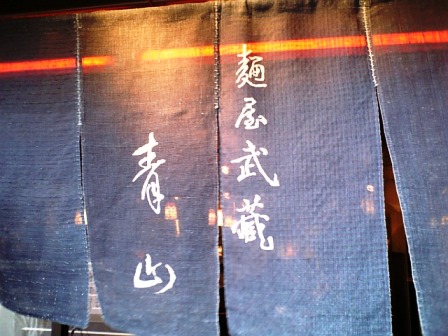 麺屋武蔵
青山